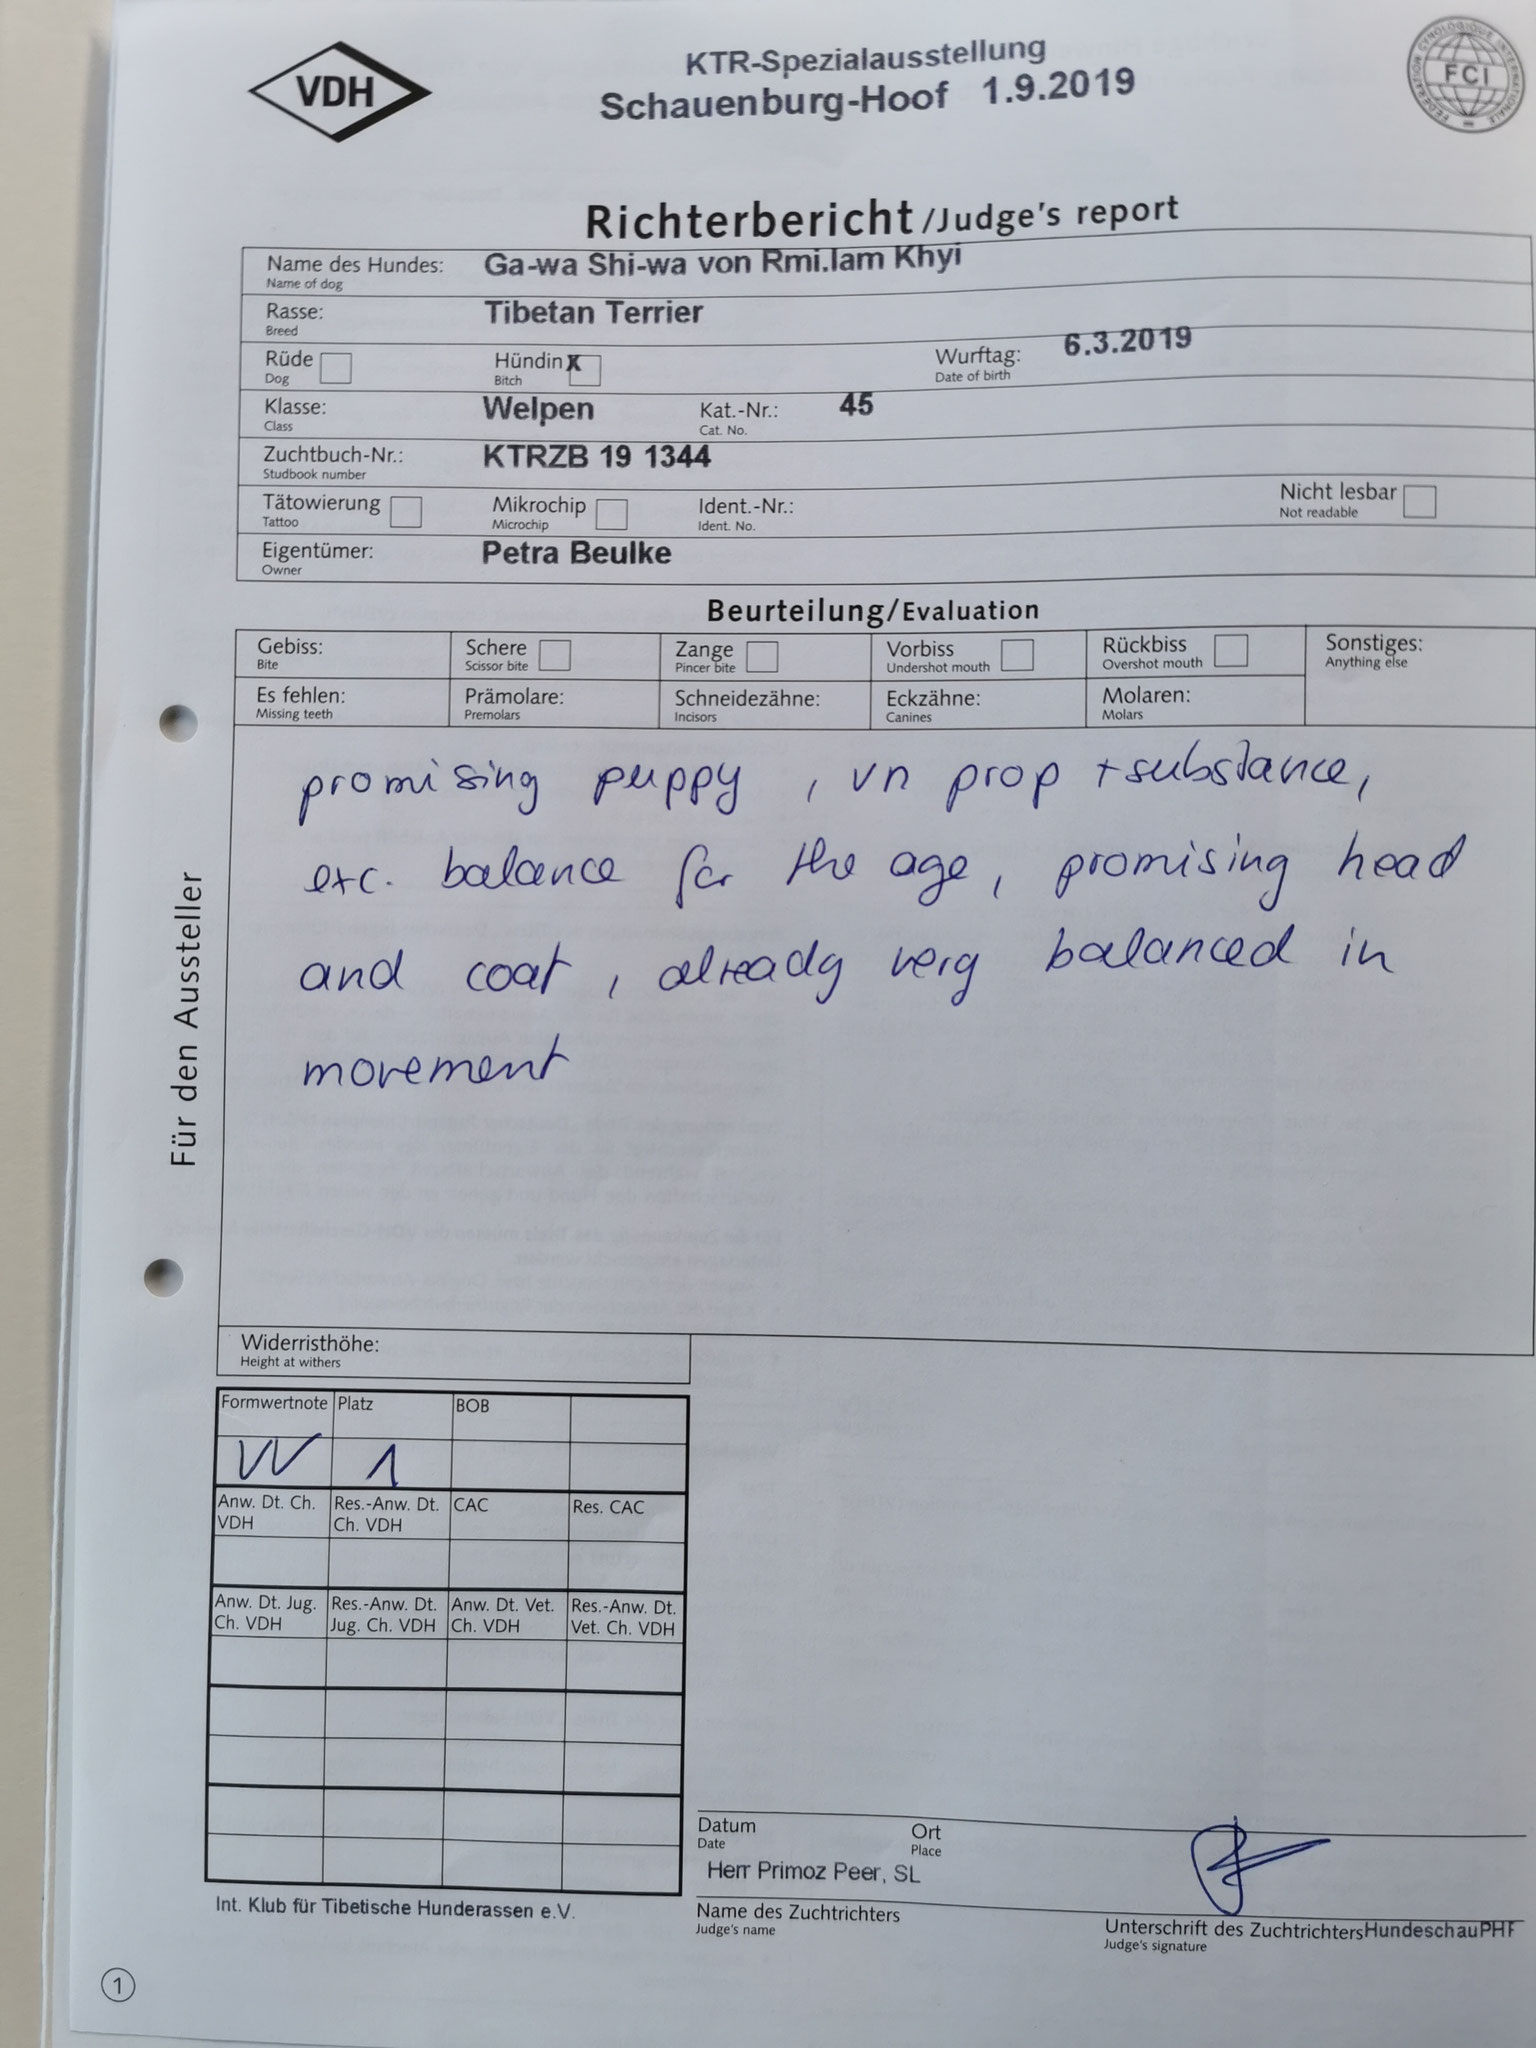 VDH
KTR-Spezialausstellung
Schauenburg-Hoof 1.9.2019
FEDERATION CYNOLOGIQUE INTERNATIONALE
FCI
Richterbericht/Judge's report
Name des Hundes: Ga-wa Shi-wa von Rmi.lam Khyi
Name of dog
Rasse: Tibetan Terrier
Breed
Rüde Hündin X Wurftag: 6.3.2019
Dog Bitch Date of birth
Klasse: Welpen Kat.-Nr.: 45
Class Cat. No.
Zuchtbuch-Nr.: KTRZB 19 1344
Studbook number
Tätowierung Mikrochip Ident.-Nr.: Nicht lesbar
Tattoo Microchip Ident. No. Not readable
Eigentümer: Petra Beulke
Owner
Beurteilung/Evaluation
Gebiss: Schere Zange Vorbiss Rückbiss Sonstiges:
Bite Scissor bite Pincer bite Undershot mouth Overshot mouth Anything else
Es fehlen: Prämolare: Schneidezähne: Eckzähne: Molaren:
Missing teeth Premolars Incisors Canines Molars
promising puppy, vn prop + substance,
exc. balance for the age, promising head
and coat, already very balanced in
movement
Für den Aussteller
Widerristhöhe:
Height at withers
Formwertnote Platz BOB
VV 1
Anw. Dt. Ch. Res.-Anw. Dt. CAC Res. CAC
VDH Ch. VDH
Anw. Dt. Jug. Res.-Anw. Dt. Anw. Dt. Vet. Res.-Anw. Dt.
Ch. VDH Jug. Ch. VDH Ch. VDH Vet. Ch. VDH
Datum Ort
Date Place
Herr Primoz Peer, SL
Int. Klub für Tibetische Hunderassen e.V.
Name des Zuchtrichters
Judge's name
Unterschrift des Zuchtrichters HundeschauPHF
Judge's signature
1